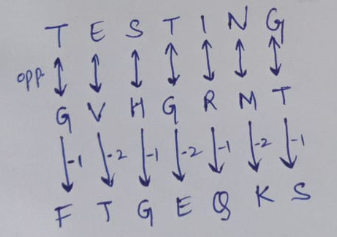 T E S T I N G
opp.
G V H G R M T
-1 -2 -1 -2 -1 -2 -1
F T G E Q K S